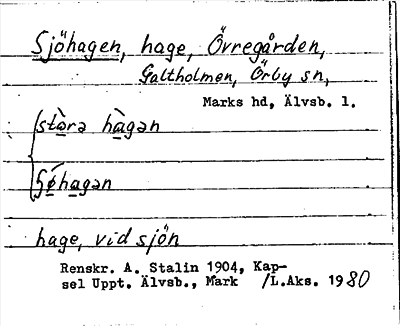 Sjöhagen, hage, Övregården,
Galtholmen, Örby sn,
Marks hd, Älvsb. l.
stòra hàgan
ʃǿhagan
hage, vid sjön
Renskr. A. Stalin 1904, Kap-
sel Uppt. Älvsb., Mark /L.Aks. 1980